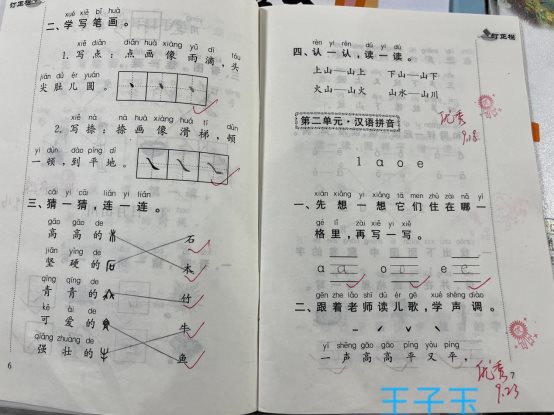 订正栏
二、学写笔画。
xué xiě bǐ huà
1. 写点：点画像雨滴，头
xiě diǎn diǎn huà xiàng yǔ dī tóu
尖肚儿圆。
jiān dù ér yuán
2. 写捺：捺画像滑梯，顿
xiě nà nà huà xiàng huá tī dùn
一顿，到平地。
yí dùn dào píng dì
三、猜一猜，连一连。
cāi yì cāi lián yì lián
高高的
gāo gāo de
石
坚硬的
jiān yìng de
木
青青的
qīng qīng de
竹
可爱的
kě ài de
牛
强壮的
qiáng zhuàng de
鱼
6
订正栏
四、认一认，读一读。
rèn yí rèn dú yì dú
上山—山上 下山—山下
火山—山火 山水—山川
优秀
9.18
第二单元·汉语拼音
1 a o e
一、先想一想它们住在哪一
xiān xiǎng yì xiǎng tā men zhù zài nǎ yì
格里，再写一写。
gé lǐ zài xiě yì xiě
a a o o e e
二、跟着老师读儿歌，学声调。
gēn zhe lǎo shī dú ér gē xué shēng diào
ˉ ˊ ˇ ˋ
一声高高平又平，
yī shēng gāo gāo píng yòu píng
优秀
9.23
7
王子玉